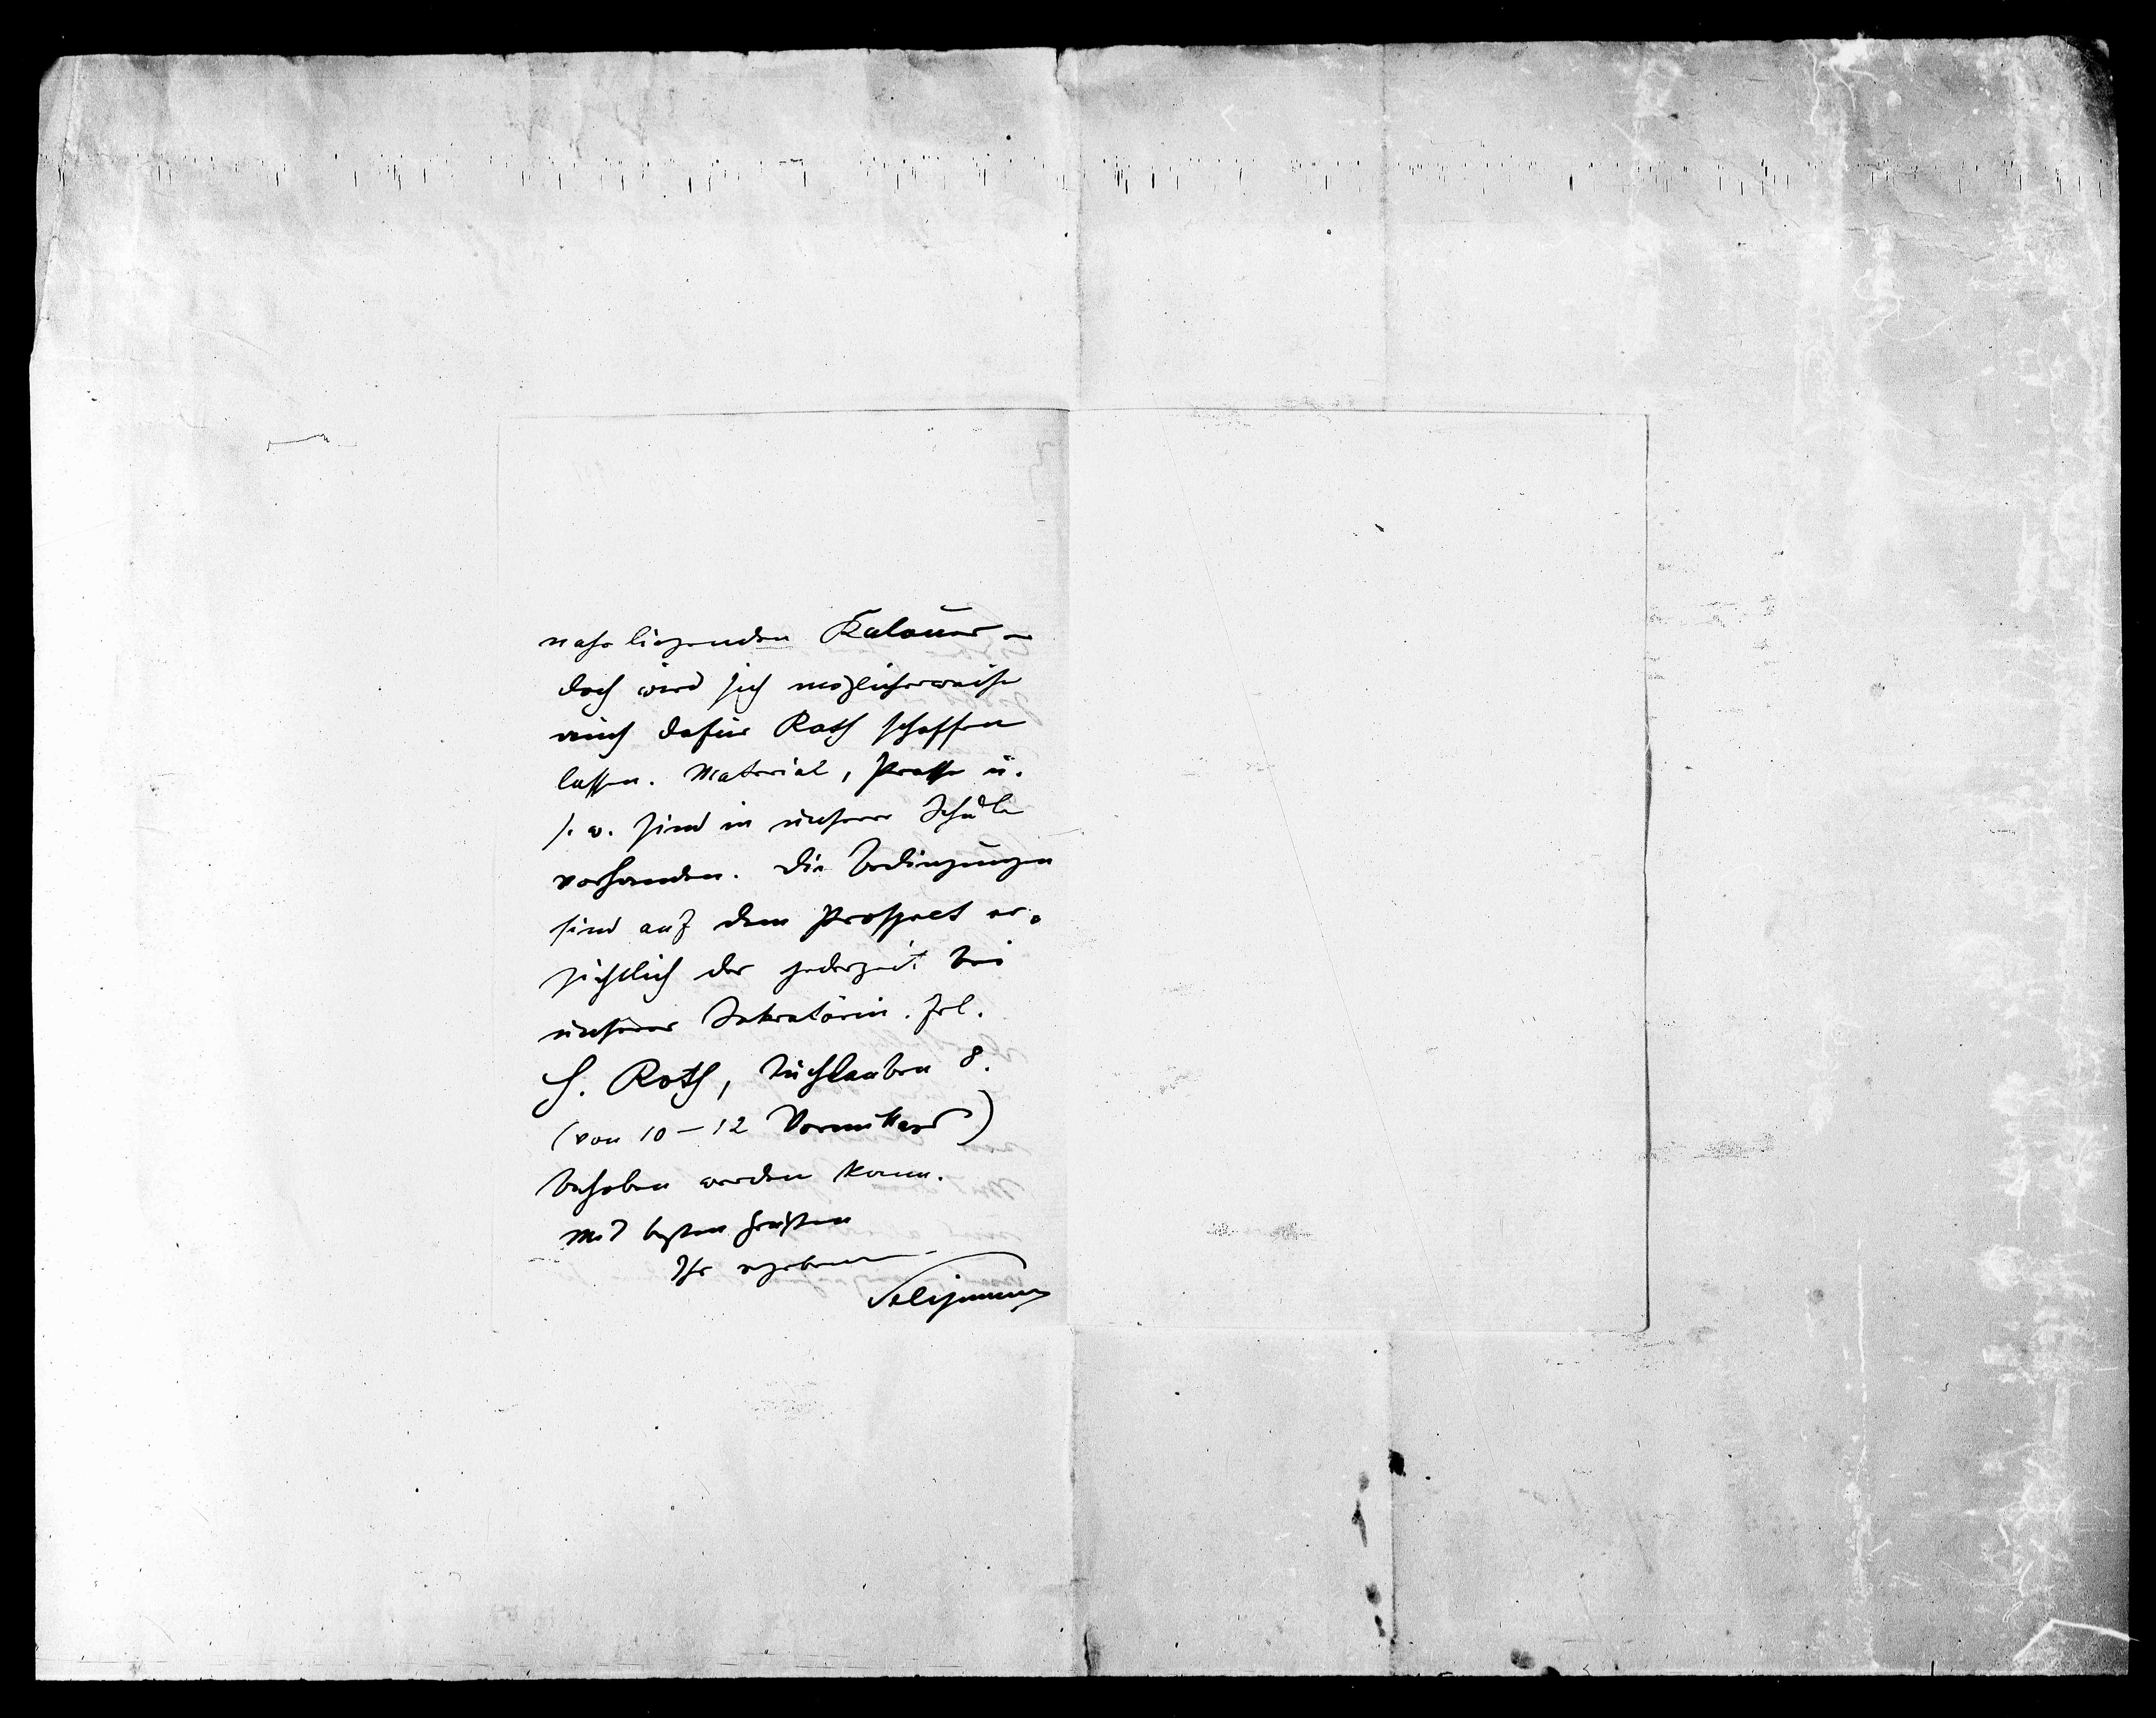 nahe liegenden Kalauer –
doch wird sich möglicherweise
auch dafür Rath schaffen
lassen. Material, Presse u.
s. w. sind in unserer Schule
vorhanden. Die Bedingungen
sind aus dem Prospect er-
sichtlich der jederzeit bei
unserer Sekretärin. Frl.
H. Roth, Tuchlauben 8.
(von 10 – 12 Vormittags)
behoben werden kann.
Mit besten Grüßen
Ihr ergebener
Seligmann